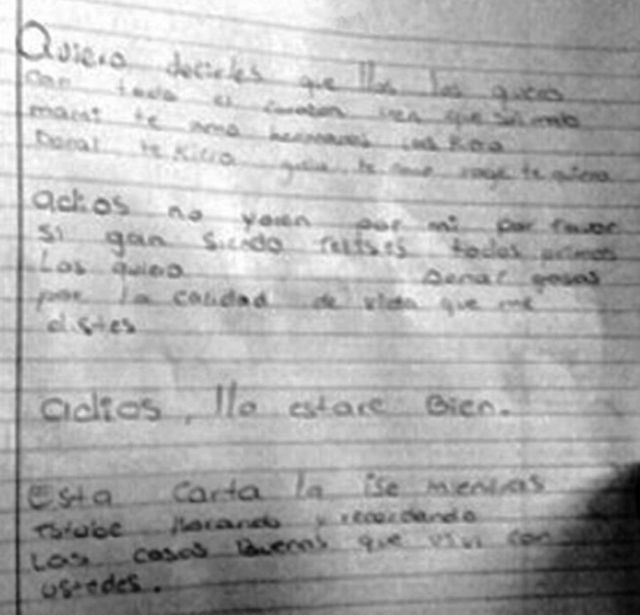 Quiero decirles que llo los quiero
con todo el corazon
mami te amo hermanos los kiero
te kiero te amo te quiero
adios no yoren por mi por favor
si gan siendo felises todos primos
Los quiero
por la calidad de vida que me
distes
adios, llo estare Bien.
Esta carta la ise mientras
estube llorando y recordando
Las cosas Buenas que vivi con
ustedes.